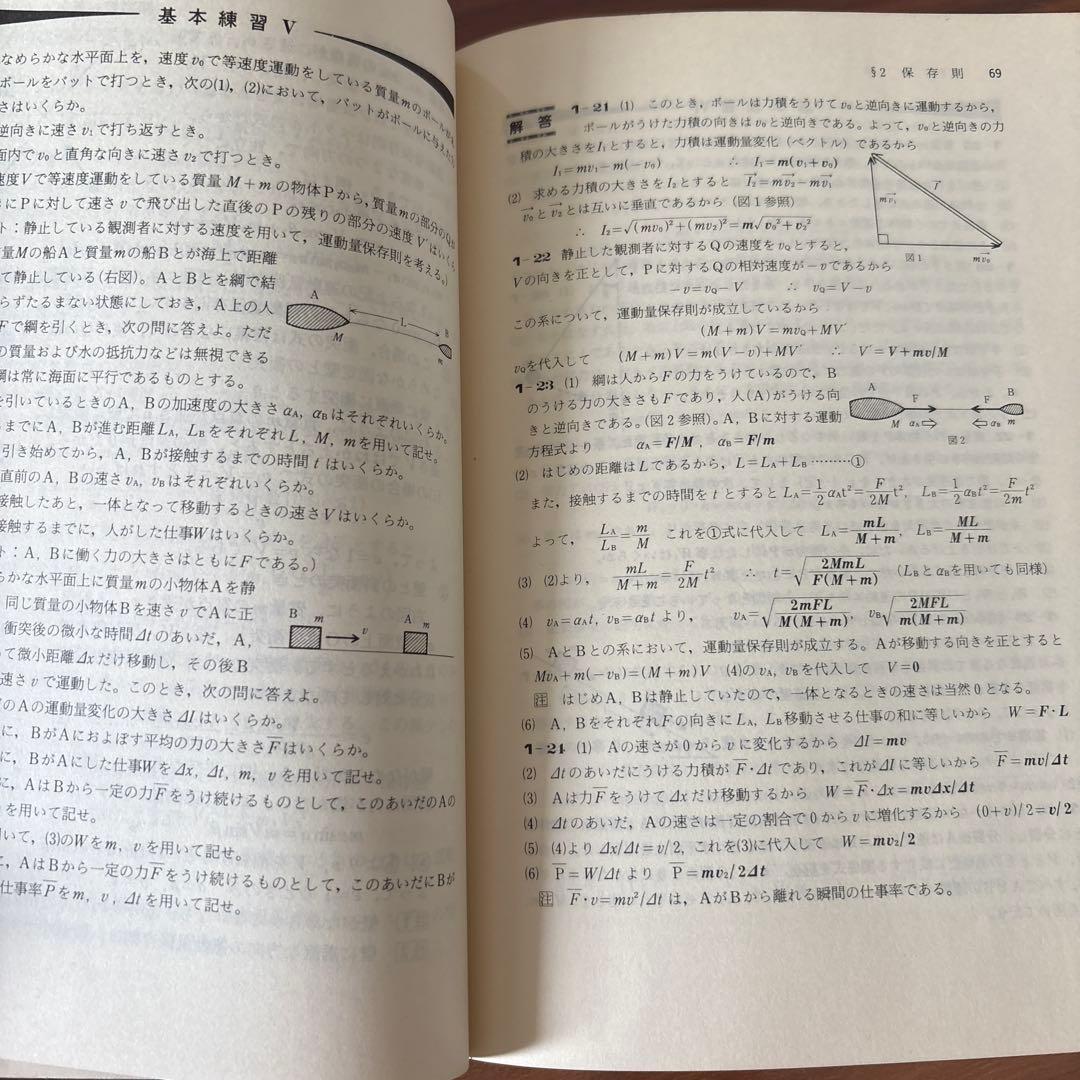 基本練習 V
なめらかな水平面上を，速度v₀で等速度運動をしている質量mのボールが
ボールをバットで打つとき，次の(1)，(2)において，バットがボールに与えた
さはいくらか。
逆向きに速さv₁で打ち返すとき。
面内でv₀と直角な向きに速さv₂で打つとき。
速度Vで等速度運動をしている質量M+mの物体Pから，質量mの部分Qが
にPに対して速さvで飛び出した直後のPの残りの部分の速度V′はいくら
ト：静止している観測者に対する速度を用いて，運動量保存則を考える。）
量Mの船Aと質量mの船Bとが海上で距離
て静止している(右図)。AとBとを綱で結
らずたるまない状態にしておき，A上の人
Fで綱を引くとき，次の問に答えよ。ただ
の質量および水の抵抗力などは無視できる
綱は常に海面に平行であるものとする。
A
L
B
M
m
を引いているときのA，Bの加速度の大きさα_A，α_Bはそれぞれいくらか。
までにA，Bが進む距離L_A，L_BをそれぞれL，M，mを用いて記せ。
引き始めてから，A，Bが接触するまでの時間tはいくらか。
直前のA，Bの速さv_A，v_Bはそれぞれいくらか。
接触したあと，一体となって移動するときの速さVはいくらか。
接触するまでに，人がした仕事Wはいくらか。
ト：A，Bに働く力の大きさはともにFである。）
らかな水平面上に質量mの小物体Aを静
同じ質量の小物体Bを速さvでAに正
衝突後の微小な時間Δtのあいだ，A，
って微小距離Δxだけ移動し，その後B
速さvで運動した。このとき，次の問に答えよ。
B m v A m
のAの運動量変化の大きさΔIはいくらか。
に，BがAにおよぼす平均の力の大きさF̄はいくらか。
に，BがAにした仕事WをΔx，Δt，m，vを用いて記せ。
に，AはBから一定の力F̄をうけ続けるものとして，このあいだのAの
を用いて記せ。
用いて，(3)のWをm，vを用いて記せ。
に，AはBから一定の力F̄をうけ続けるものとして，このあいだにBが
仕事率P̄をm，v，Δtを用いて記せ。
§2 保存則 69
解答
1-21 (1) このとき，ボールは力積をうけてv₀と逆向きに運動するから，
ボールがうけた力積の向きはv₀と逆向きである。よって，v₀と逆向きの力
積の大きさをI₁とすると，力積は運動量変化（ベクトル）であるから
I₁=mv₁−m(−v₀) ∴ I₁=m(v₁+v₀)
(2) 求める力積の大きさをI₂とすると I₂→=mv₂→−mv₁→
v₀→とv₂→とは互いに垂直であるから（図1参照）
∴ I₂=√((mv₀)²+(mv₂)²)=m√(v₀²+v₂²)
mv₁→
I→
mv₀→
図1
1-22 静止した観測者に対するQの速度をv_Qとすると，
Vの向きを正として，Pに対するQの相対速度が−vであるから
−v=v_Q−V ∴ v_Q=V−v
この系について，運動量保存則が成立しているから
(M+m)V=mv_Q+MV′
v_Qを代入して (M+m)V=m(V−v)+MV′ ∴ V′=V+mv/M
1-23 (1) 綱は人からFの力をうけているので，B
のうける力の大きさもFであり，人(A)がうける向
きと逆向きである。(図2参照)。A，Bに対する運動
方程式より α_A=F/M，α_B=F/m
A F F B
M α_A α_B m
図2
(2) はじめの距離はLであるから，L=L_A+L_B………①
また，接触するまでの時間をtとするとL_A=1/2 α_At²=F/2M t²，L_B=1/2 α_Bt²=F/2m t²
よって，L_A/L_B=m/M これを①式に代入して L_A=mL/(M+m)，L_B=ML/(M+m)
(3) (2)より，mL/(M+m)=F/2M t² ∴ t=√(2MmL/F(M+m)) (L_Bとα_Bを用いても同様)
(4) v_A=α_At，v_B=α_Bt より，v_A=√(2mFL/M(M+m))，v_B√(2MFL/m(M+m))
(5) AとBとの系において，運動量保存則が成立する。Aが移動する向きを正とすると
Mv_A+m(−v_B)=(M+m)V (4)のv_A，v_Bを代入して V=0
注 はじめA，Bは静止していたので，一体となるときの速さは当然0となる。
(6) A，BをそれぞれFの向きにL_A，L_B移動させる仕事の和に等しいから W=F・L
1-24 (1) Aの速さが0からvに変化するから ΔI=mv
(2) Δtのあいだにうける力積がF̄・Δtであり，これがΔIに等しいから F̄=mv/Δt
(3) Aは力F̄をうけてΔxだけ移動するから W=F̄・Δx=mvΔx/Δt
(4) Δtのあいだ，Aの速さは一定の割合で0からvに増加するから (0+v)/2=v/2
(5) (4)よりΔx/Δt=v/2，これを(3)に代入して W=mv₂/2
(6) P̄=W/Δt より P̄=mv₂/2Δt
注 F̄・v=mv²/Δtは，AがBから離れる瞬間の仕事率である。